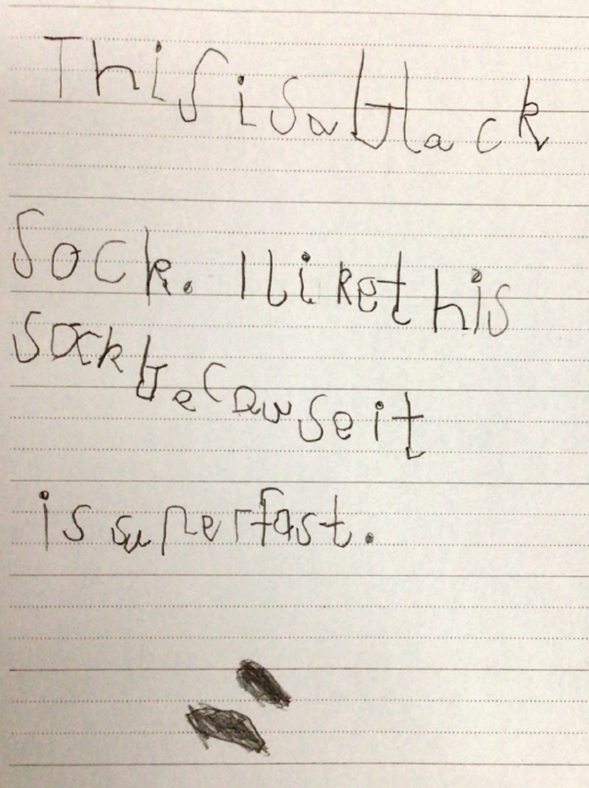 This is a black
sock. I like this
sock because it
is super fast.